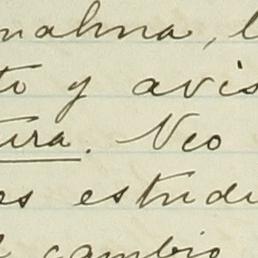 malma, l
to y avis
tura. Neo
es estudi
l cambio